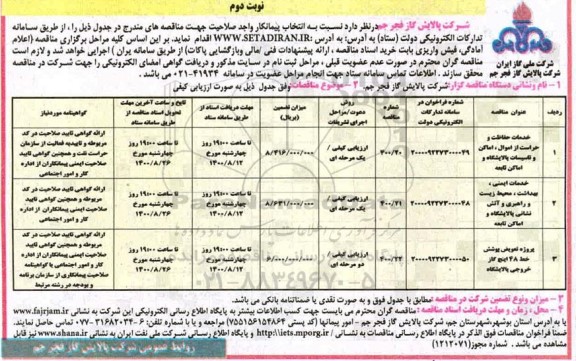 نوبت دوم
شرکت ملی گاز ایران
شرکت پالایش گاز فجر جم
شرکت پالایش گاز فجر جم در نظر دارد نسبت به انتخاب پیمانکار واجد صلاحیت جهت مناقصه های مندرج در جدول ذیل را، از طریق سامانه
تدارکات الکترونیکی دولت (ستاد) به آدرس: به آدرس: WWW.SETADIRAN.IR اقدام نماید. بر این اساس کلیه مراحل برگزاری مناقصه (اعلام
آمادگی، فیش واریزی بابت خرید اسناد مناقصه، ارائه پیشنهادات فنی/مالی وبازگشایی پاکات) از طریق سامانه اجرایی خواهد شد و لازم است
مناقصه گران محترم در صورت عدم عضویت قبلی، مراحل ثبت نام در سایت مذکور و دریافت گواهی امضای الکترونیکی را جهت شرکت در مناقصه
محقق سازند. اطلاعات تماس سامانه ستاد جهت انجام مراحل عضویت در سامانه ۴۱۹۳۴-۰۲۱ می باشد.
۱- نام و نشانی دستگاه مناقصه گزار: شرکت پالایش گاز فجر جم ۲- موضوع مناقصات: وفق جدول ذیل به صورت ارزیابی کیفی
ردیف عنوان مناقصه شماره فراخوان در سامانه تدارکات الکترونیکی دولت شماره مناقصه روش دعوت/مراحل اجرای تشریفات میزان تضمین (ریال) مهلت دریافت اسناد از طریق سامانه ستاد تاریخ و ساعت آخرین مهلت تحویل اسناد مناقصه از طریق سامانه ستاد گواهینامه موردنیاز
۱ خدمات حفاظت و حراست از اموال، اماکن و تاسیسات پالایشگاه و اماکن تابعه ۲۰۰۰۰۹۲۲۷۳۰۰۰۰۴۹ ۴۰۰/۲۰ ارزیابی کیفی / یک مرحله ای تا ساعت ۱۹:۰۰ روز چهارشنبه مورخ ۱۴۰۰/۸/۱۲ تا ساعت ۱۹:۰۰ روز چهارشنبه مورخ ۱۴۰۰/۸/۲۶ ارائه گواهی تایید صلاحیت در کد مربوطه و تائیدیه فعالیت از سازمان حراست نفت و همچنین گواهی تایید صلاحیت ایمنی پیمانکاران از اداره کار و امور اجتماعی
۲ خدمات ایمنی، بهداشت، محیط زیست و راهبری و آتش نشانی پالایشگاه و اماکن تابعه ۲۰۰۰۰۹۲۲۷۳۰۰۰۰۴۸ ۴۰۰/۲۱ ارزیابی کیفی / یک مرحله ای تا ساعت ۱۹:۰۰ روز چهارشنبه مورخ ۱۴۰۰/۸/۱۲ تا ساعت ۱۹:۰۰ روز چهارشنبه مورخ ۱۴۰۰/۸/۲۶ ارائه گواهی تایید صلاحیت در کد مربوطه و همچنین گواهی تایید صلاحیت ایمنی پیمانکاران از اداره کار و امور اجتماعی
۳ پروژه تعویض پوشش خط ۴۸ اینچ گاز خروجی پالایشگاه ۲۰۰۰۰۹۲۲۷۳۰۰۰۰۵۰ ارزیابی کیفی / دو مرحله ای تا ساعت ۱۹:۰۰ روز چهارشنبه مورخ ۱۴۰۰/۸/۱۲ تا ساعت ۱۹:۰۰ روز چهارشنبه مورخ ۱۴۰۰/۸/۲۶ ارائه گواهی تایید صلاحیت در کد مربوطه و همچنین گواهی تایید صلاحیت ایمنی پیمانکاران از اداره کار و امور اجتماعی یا گواهینامه صلاحیت پیمانکاری از سازمان برنامه و بودجه در رشته مرتبط
۳- میزان و نوع تضمین شرکت در مناقصه: مطابق با جدول فوق و به صورت نقدی یا ضمانتنامه بانکی می باشد.
۴- محل، زمان و مهلت دریافت اسناد مناقصه: مناقصه گران محترم می بایست جهت کسب اطلاعات بیشتر به پایگاه اطلاع رسانی الکترونیکی این شرکت به نشانی www.fajrjam.ir
یا به آدرس استان بوشهر، شهرستان جم، شرکت پالایش گاز فجر جم - امور پیمانها (کد پستی ۷۵۵۱۵۶۱۵۴۸۶۶) مراجعه و یا با شماره تلفن: ۶-۳۱۶۸۲۰۳۴-۰۷۷ تماس حاصل نمایند.
ضمناً فراخوان مناقصات فوق الذکر در پایگاه اطلاع رسانی مناقصات به نشانی http://iets.mporg.ir و پایگاه اطلاع رسانی شرکت ملی نفت ایران به نشانی www.shana.ir نیز قابل
مشاهده است. شماره مجوز (۱۲۱۲۰۷۱)
روابط عمومی شرکت پالایش گاز فجر جم
۰۲۱-۸۸۳۴۹۶۷۰-۵